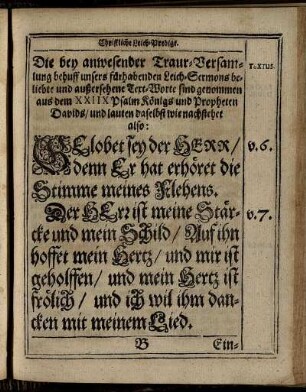 Christliche Leich-Predigt.
Die bey anwesender Traur-Versam-
lung behuff unsers fürhabenden Leich-Sermons be-
liebte und außersehene Text-Worte sind genommen
aus dem XXIIX Psalm Königs und Propheten
Davids/ und lauten daselbst wie nachstehet
also:
TEXTUS.
GElobet sey der HERR/
denn Er hat erhöret die
Stimme meines Flehens.
v.6.
Der HErr ist meine Stär-
cke und mein Schild/ Auf ihn
hoffet mein Hertz/ und mir ist
geholffen/ und mein Hertz ist
frölich/ und ich wil ihm dan-
cken mit meinem Lied.
v.7.
B
Ein-